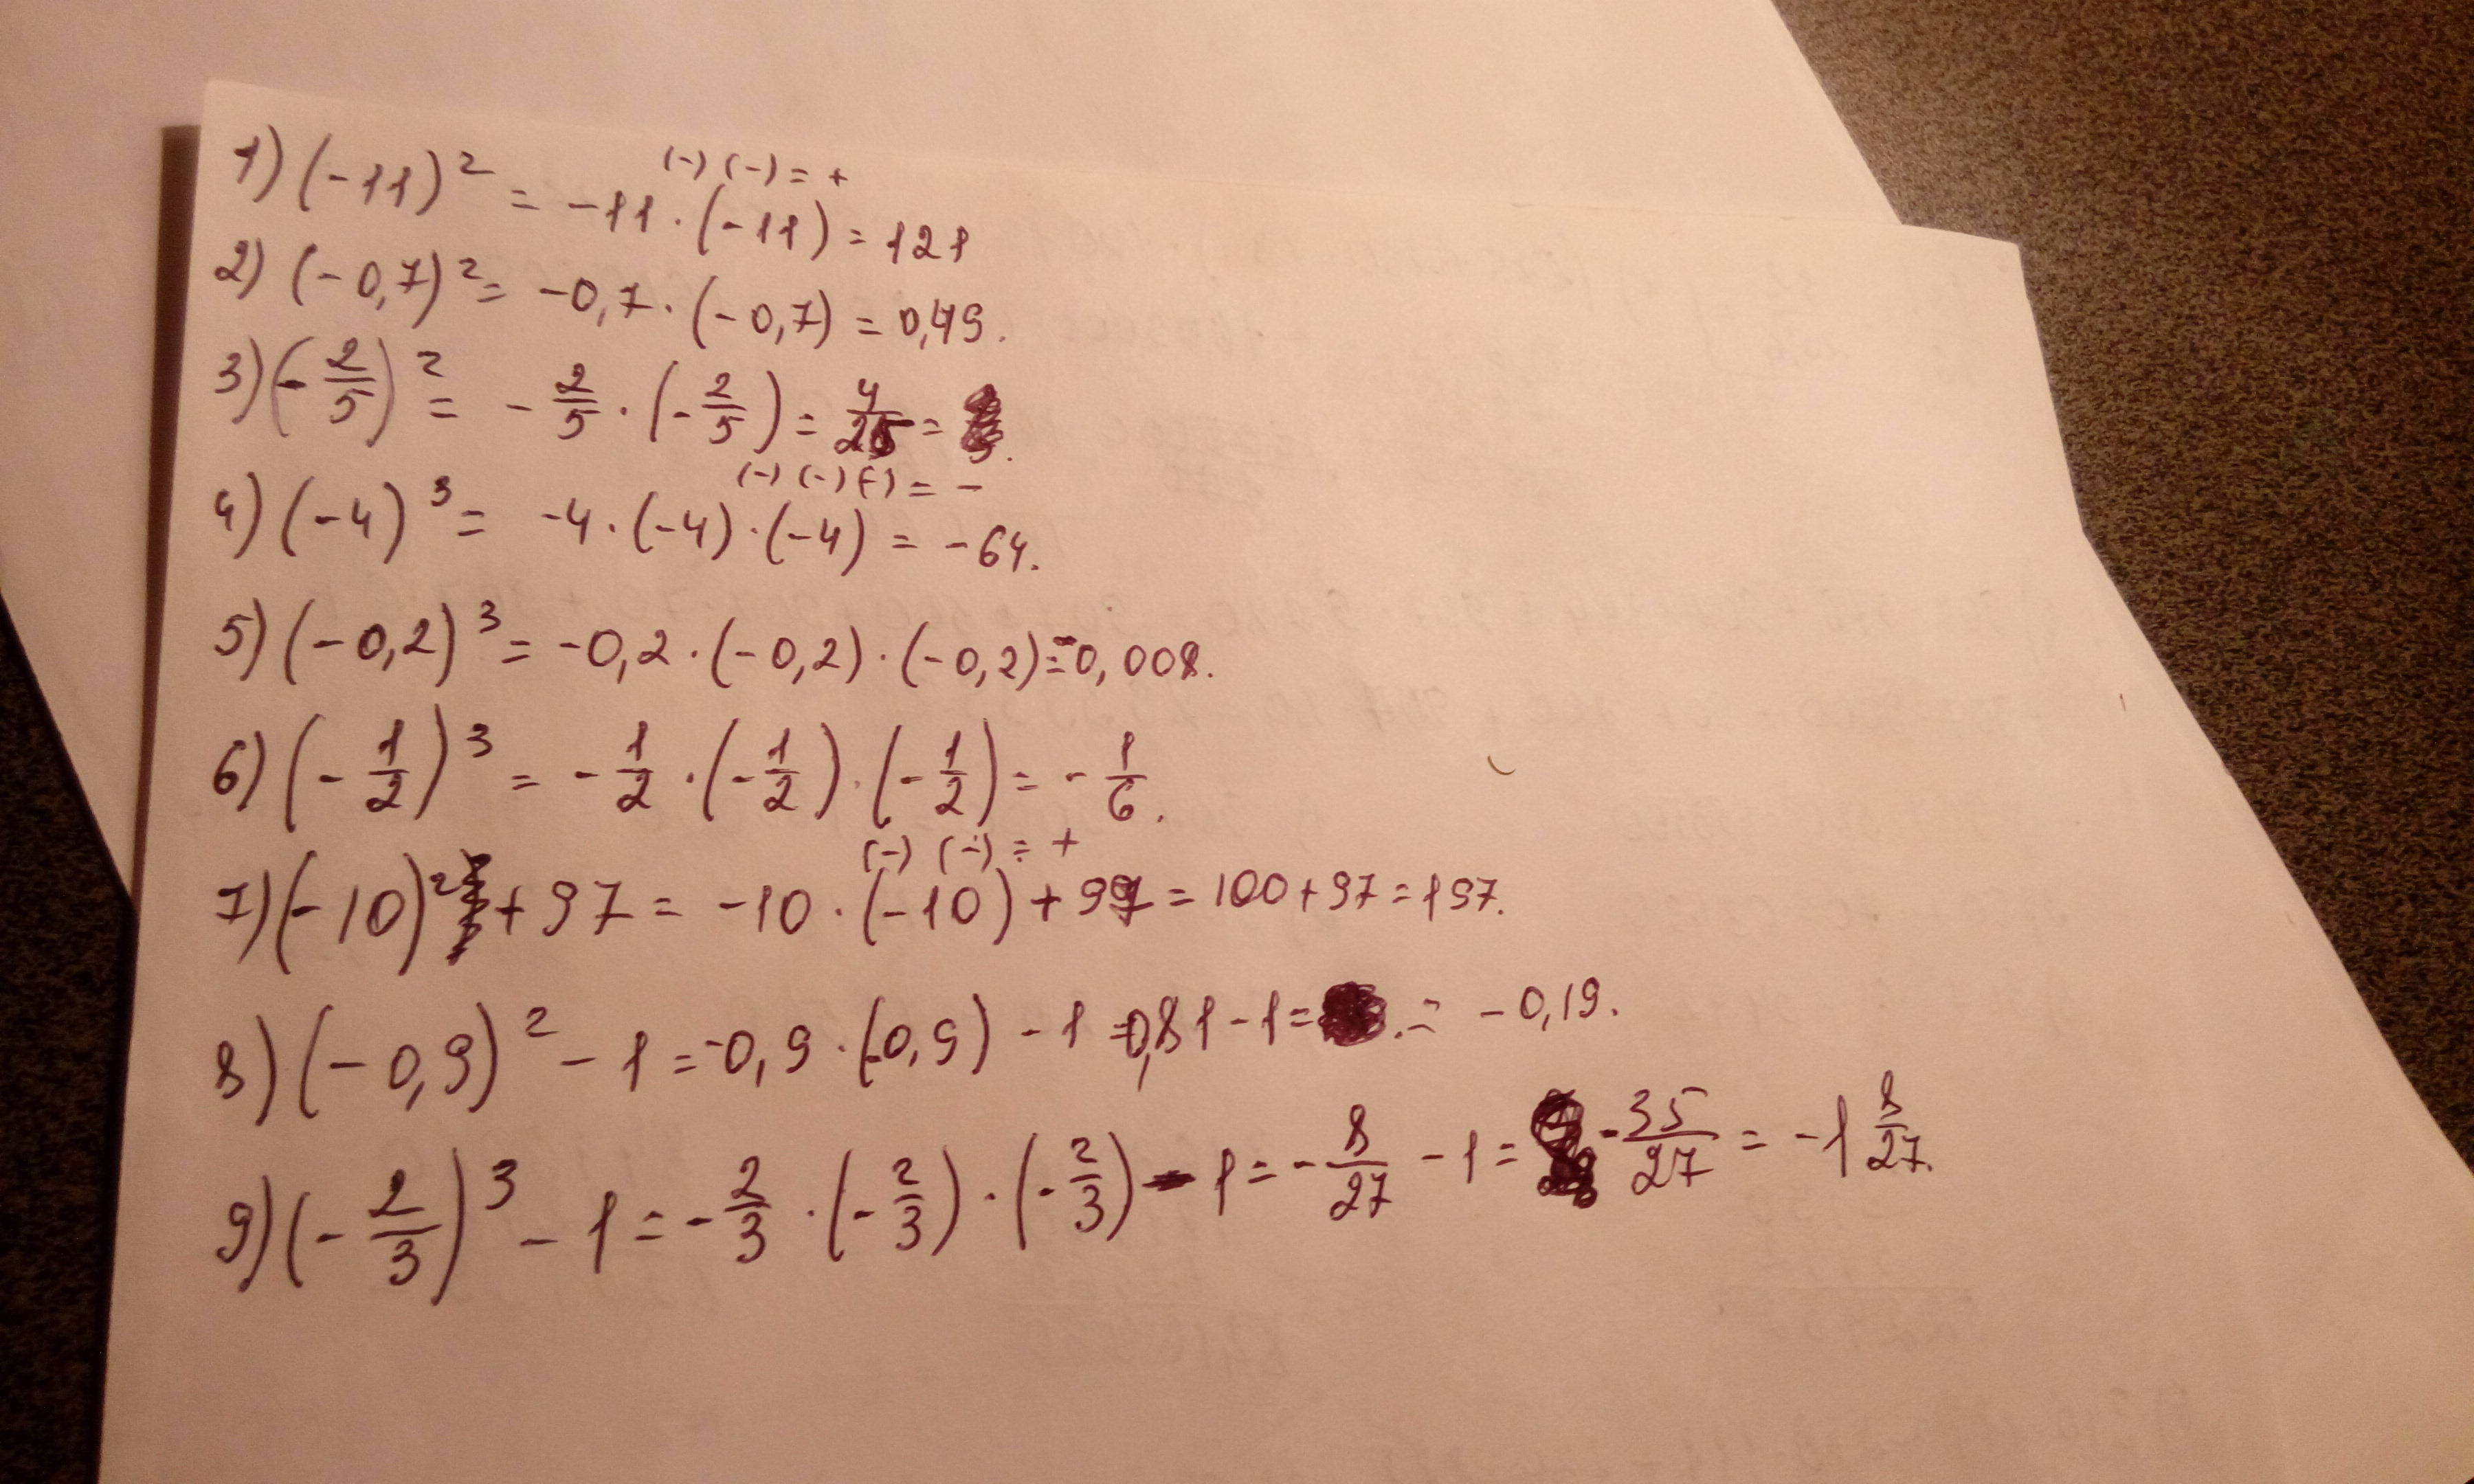 (-) (-) = +
1) (-11)² = -11 · (-11) = 121
2) (-0,7)² = -0,7 · (-0,7) = 0,49.
3) (-2/5)² = -2/5 · (-2/5) = 4/25 = .
(-) (-) (-) = -
4) (-4)³ = -4 · (-4) · (-4) = -64.
5) (-0,2)³ = -0,2 · (-0,2) · (-0,2) = -0,008.
6) (-1/2)³ = -1/2 · (-1/2) · (-1/2) = -1/6.
(-) (-) = +
7) (-10)² + 97 = -10 · (-10) + 97 = 100 + 97 = 197.
8) (-0,9)² - 1 = -0,9 · (-0,9) - 1 = 0,81 - 1 = . = -0,19.
9) (-2/3)³ - 1 = -2/3 · (-2/3) · (-2/3) - 1 = -8/27 - 1 = -35/27 = -1 8/27.